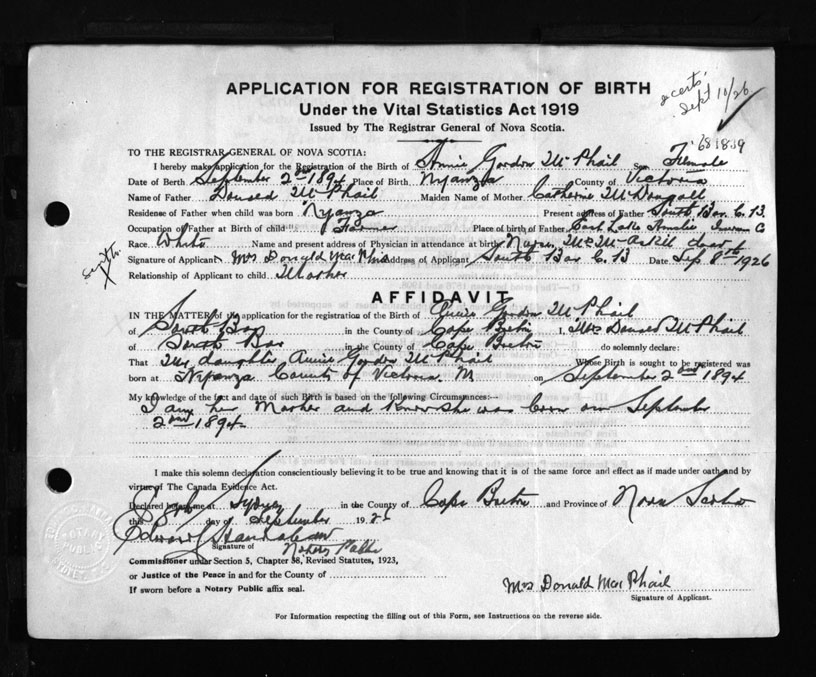 APPLICATION FOR REGISTRATION OF BIRTH
Under the Vital Statistics Act 1919
Issued by The Registrar General of Nova Scotia.
2 certs.
Sept 10/26
681839
TO THE REGISTRAR-GENERAL OF NOVA SCOTIA:
I hereby make application for the Registration of the Birth of Annie Gordon McPhail Sex Female
Date of Birth September 2nd 1894 Place of Birth Nyanza County of Victoria
Name of Father Donald McPhail Maiden Name of Mother Catherine McDougall
Residence of Father when child was born Nyanza Present address of Father South Bar C.B.
Occupation of Father at Birth of child Farmer Place of birth of Father East Lake
Race White Name and present address of Physician in attendance at birth
Signature of Applicant Mrs Donald MacPhail Address of Applicant South Bar C.B Date Sep 8th 1926
Relationship of Applicant to child Mother
AFFIDAVIT
IN THE MATTER of the application for the registration of the Birth of Annie Gordon McPhail
of South Bar in the County of Cape Breton I, Mrs Donald McPhail
of South Bar in the County of Cape Breton do solemnly declare:
That My daughter Annie Gordon McPhail Whose Birth is sought to be registered was
born at Nyanza County of Victoria on September 2nd 1894
My knowledge of the fact and date of such Birth is based on the following Circumstances:—
I am her Mother and know she was born on September
2nd 1894
I make this solemn declaration conscientiously believing it to be true and knowing that it is of the same force and effect as if made under oath and by
virtue of The Canada Evidence Act.
Declared before me at Sydney in the County of Cape Breton and Province of Nova Scotia
this day of September 192
Signature of Notary Public
Commissioner under Section 5, Chapter 38, Revised Statutes, 1923,
or Justice of the Peace in and for the County of
If sworn before a Notary Public affix seal.
Mrs Donald MacPhail
Signature of Applicant.
For Information respecting the filling out of this Form, see Instructions on the reverse side.